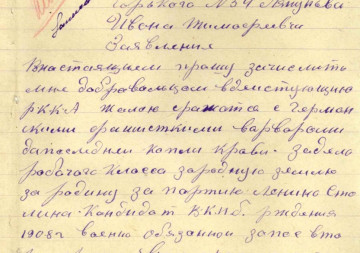 Горького №54
Ивана Тимофеевича
Заявление
Внастаящем прашу зачислить
мне добравольцом вдействующию
РККА Жалаю сражатса с Герман
скими фашисткими варварами
дапоследней капли крави. За дело
рабочаго класса зародную землю
за родину за партию Ленина Ста
лина. Кандидат ВКПб. рждения
1908г военно обязанной запаса вто